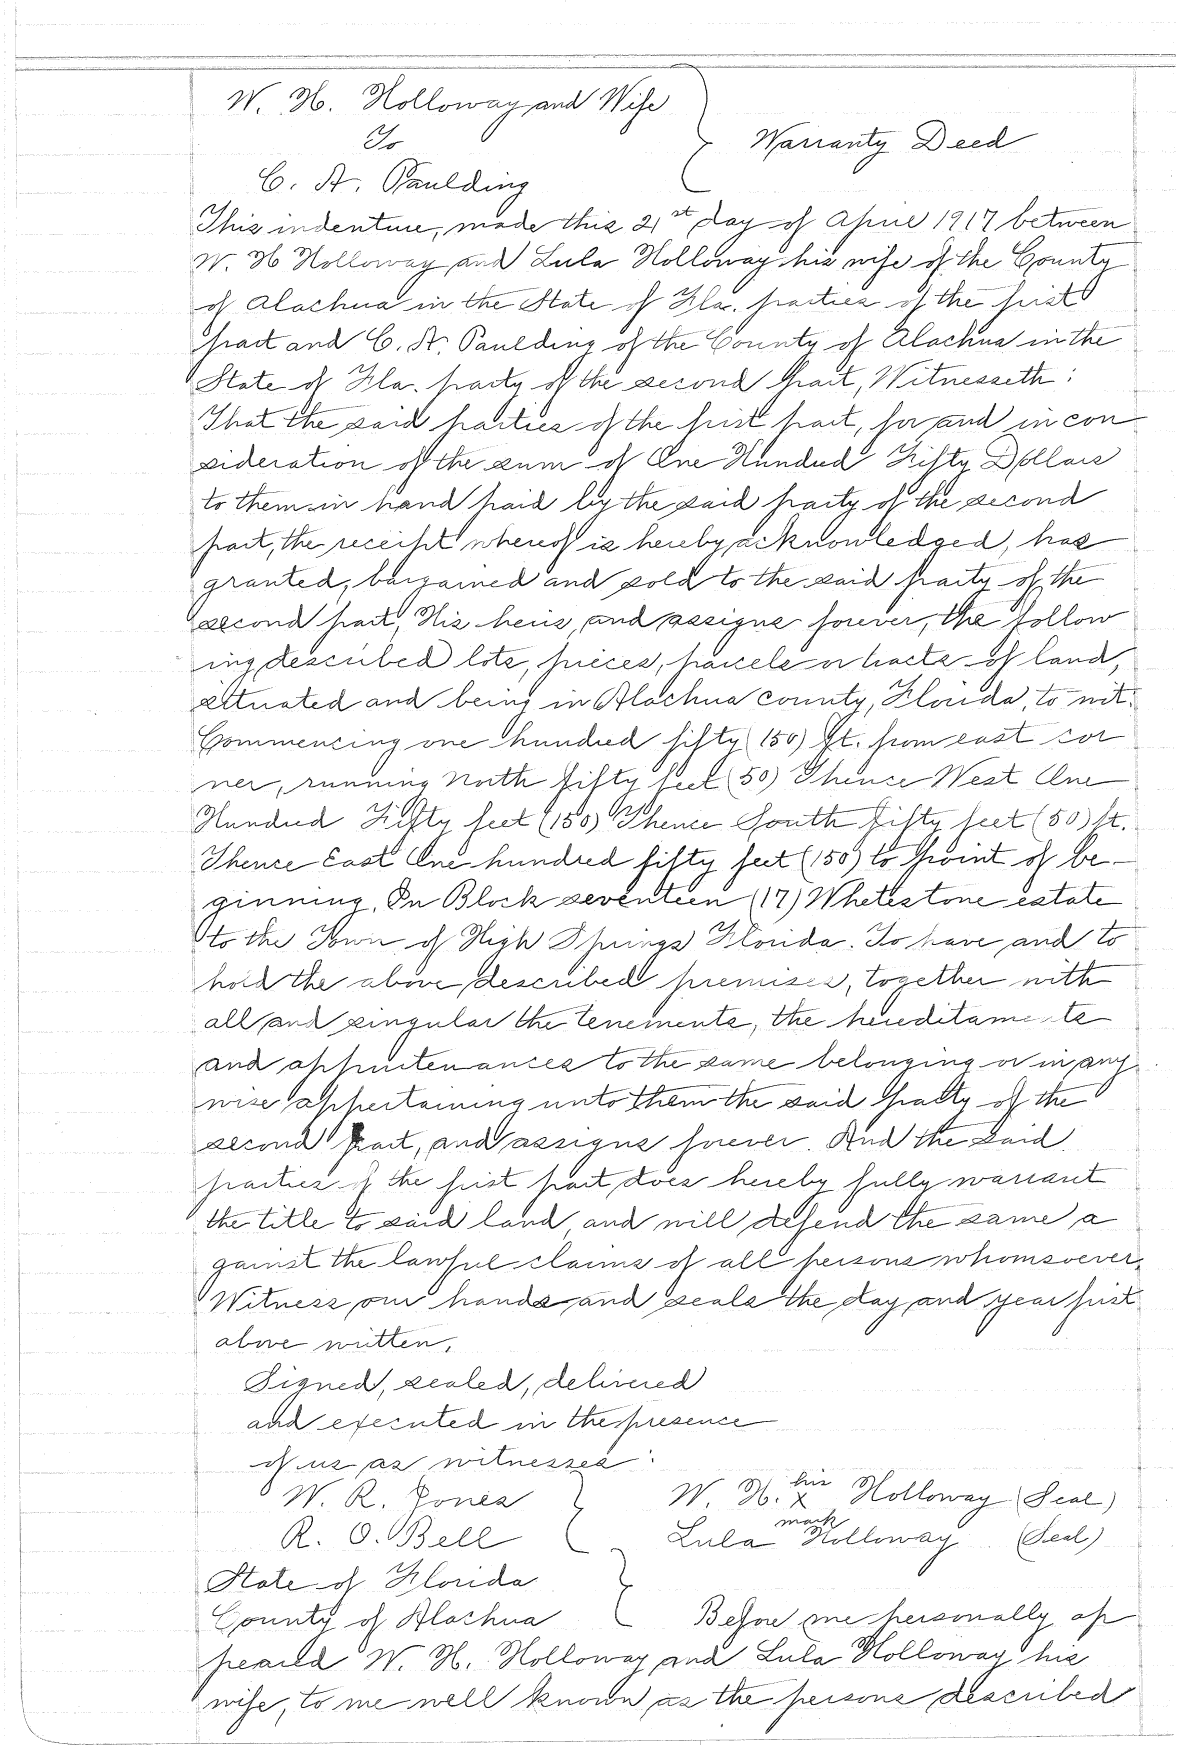 W. H. Holloway and Wife
To
Warranty Deed
C. A. Paulding
This indenture, made this 21st day of April 1917 between
W. H Holloway and Lula Holloway his wife of the County
of Alachua in the State of Fla. parties of the first
part and C. A. Paulding of the County of Alachua in the
State of Fla. party of the second part, Witnesseth:
That the said parties of the first part, for and in con
sideration of the sum of One Hundred Fifty Dollars
to them in hand paid by the said party of the second
part, the receipt whereof is hereby acknowledged, has
granted, bargained and sold to the said party of the
second part, His heirs and assigns forever, the follow
ing described lots, pieces, parcels or tracts of land,
situated and being in Alachua county, Florida, to wit:
Commencing one hundred fifty (150) ft. from east cor
ner, running north fifty feet (50) Thence West One
Hundred Fifty feet (150) Thence South fifty feet (50) ft.
Thence East One hundred fifty feet (150) to point of be-
ginning, In Block seventeen (17) Whetestone estate
to the Town of High Springs Florida. To have and to
hold the above described premises, together with
all and singular the tenements, the hereditaments
and appurtenances to the same belonging or in any
wise appertaining unto them the said party of the
second part, and assigns forever. And the said
parties of the first part does hereby fully warrant
the title to said land and will defend the same a
gainst the lawful claims of all persons whomsoever.
Witness our hands and seals the day and year first
above written.
Signed, sealed, delivered
and executed in the presence
of us as witnesses:
W. R. Jones W. H. his x mark Holloway (Seal)
R. O. Bell Lula Holloway (Seal)
State of Florida
County of Alachua Before me personally ap
peared W. H. Holloway and Lula Holloway his
wife, to me well known as the persons described